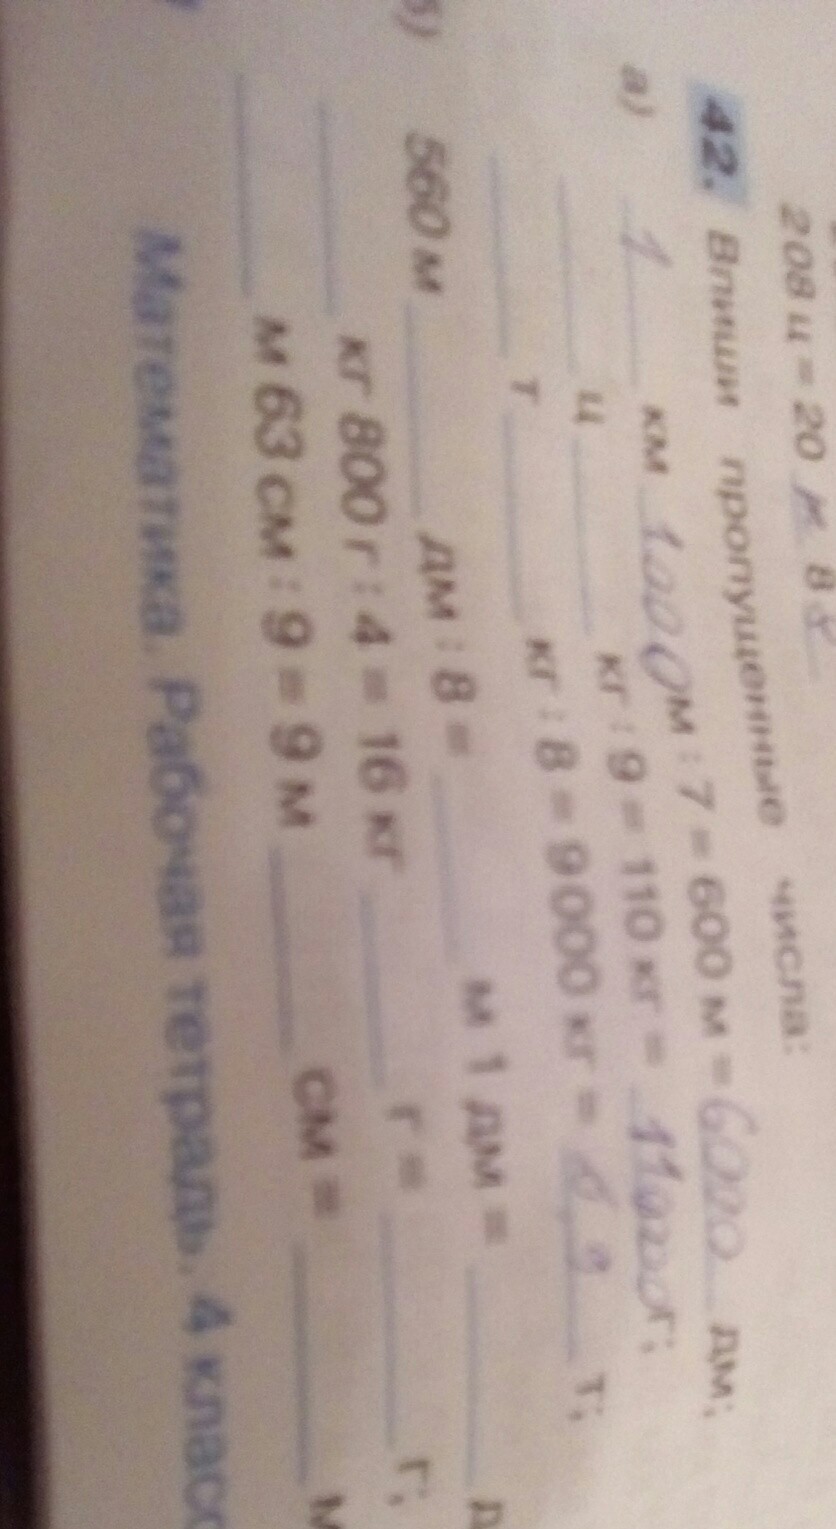 208 ц = 20 8
42. Впиши пропущенные числа:
а) 1 км 1000 м : 7 = 600 м = 6000 дм;
ц кг : 9 = 110 кг = г;
т кг : 8 = 9000 кг = 9 т;
б) 560 м дм : 8 = м 1 дм =
кг 800 г : 4 = 16 кг г = г;
м 63 см : 9 = 9 м см =
Математика. Рабочая тетрадь. 4 класс